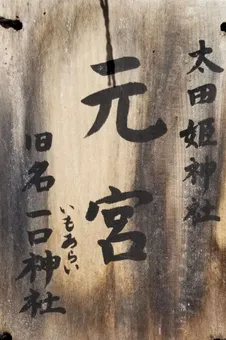 太田姫神社
元宮
旧名一口神社
いもあらい